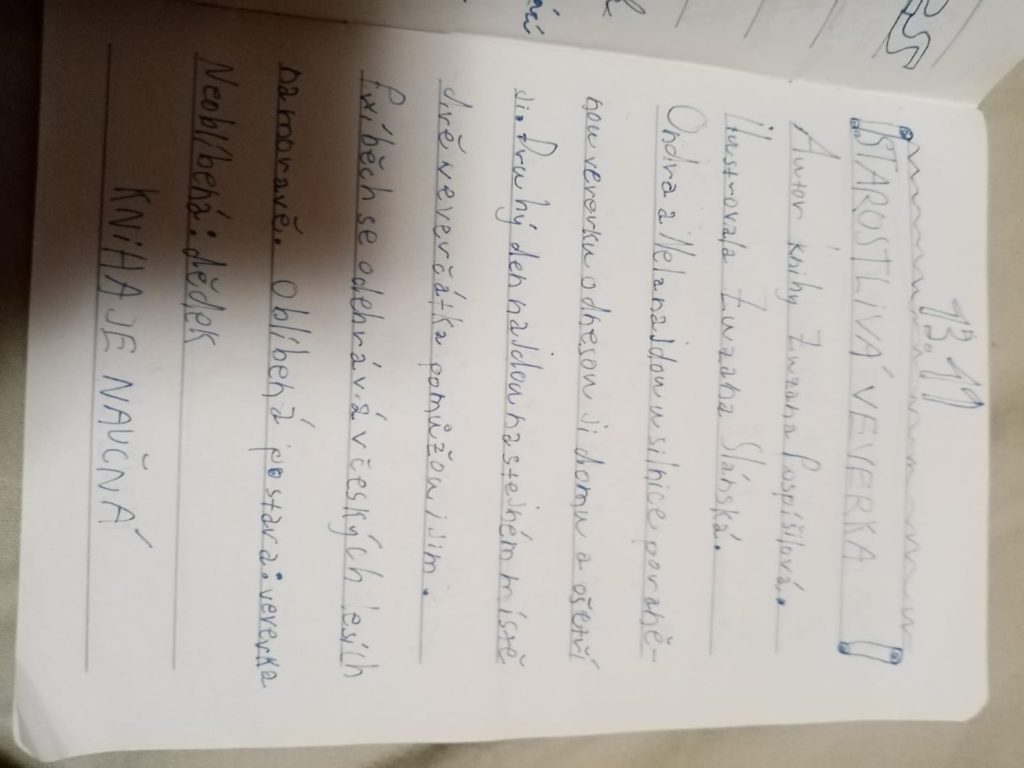 13.11
STAROSTLIVÁ VEVERKA
Autor knihy Zuzana Pospíšilová.
Ilustrovala Zuzana Slánská.
Ondra a Mela najdou u silnice poraně-
nou veverku odnesou ji domu a ošetří
ji. Druhý den najdou na stejném místě
dvě veverčátka pomůžou i jim.
Příběch se odehrává v českých lesích
na moravě. Oblíbená postava: veverka
Neoblíbená: dědek
KNIHA JE NAUČNÁ